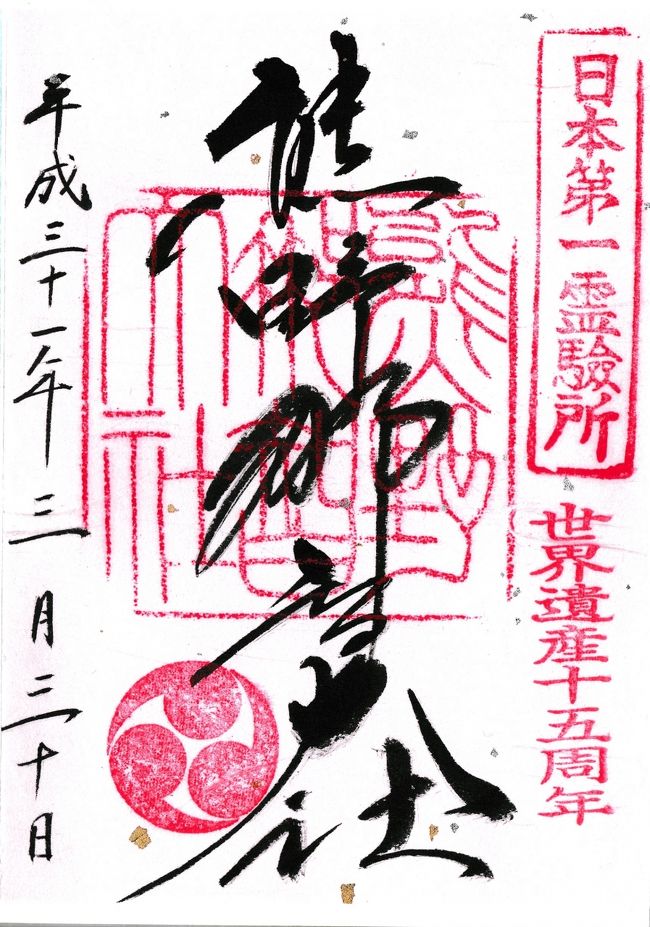 日本第一霊験所
世界遺産十五周年
熊野那智大社
平成三十一年三月三十日